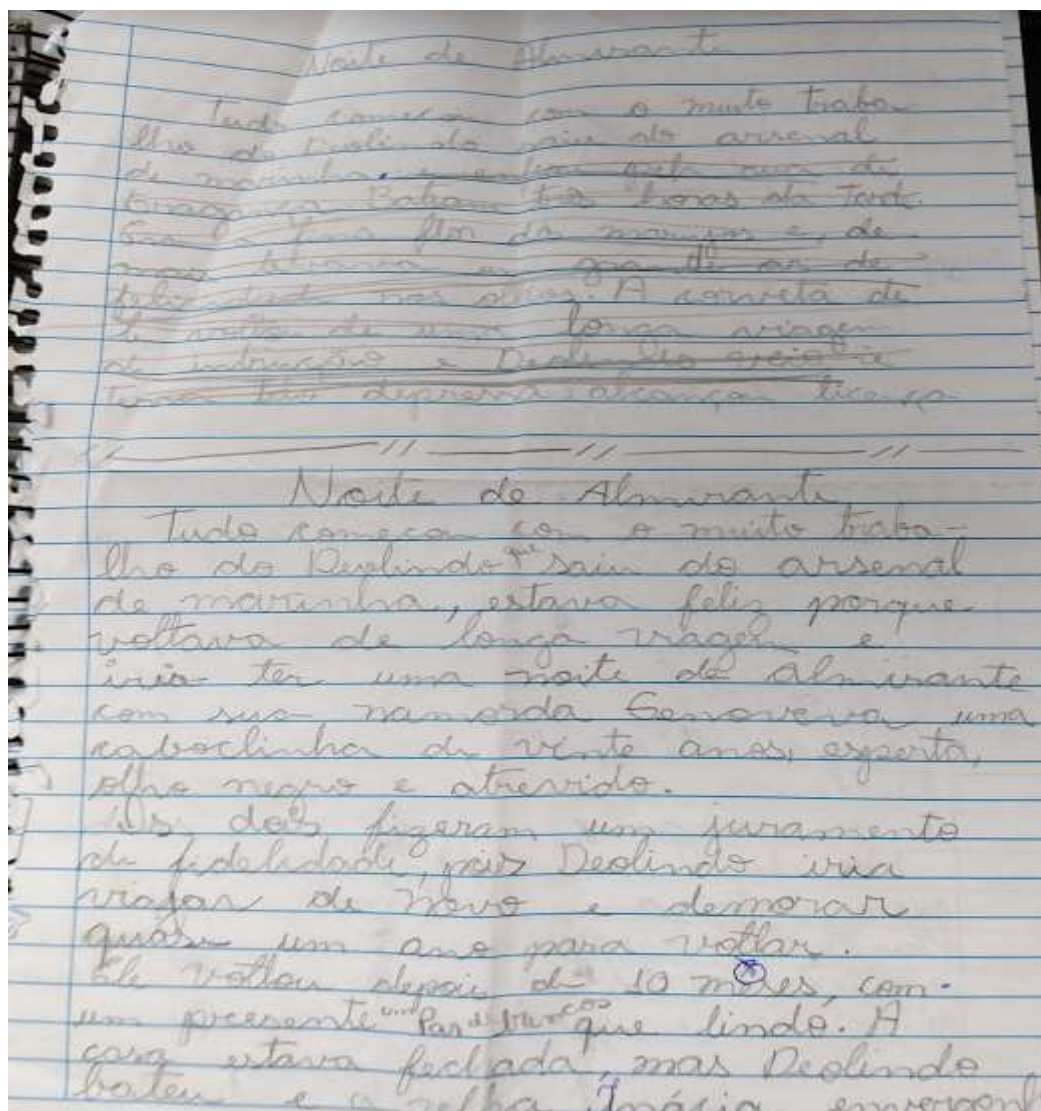 Noite de Almirante
Tudo começou com o muito traba-
lho do Deolindo saiu do arsenal
de marinha. e entrou pela rua de
Bragança Batiam três horas da Tarde.
Era a fina flor da marujos e, de
mais levava um grande ar de
felicidade nos olhos. A corveta de
le voltou de uma longa viagem
de instrução e Deolindo veio a
Terra tão depressa alcançou licença
Noite de Almirante
Tudo começou com o muito traba-
lho do Deolindo que saiu do arsenal
de marinha, estava feliz porque
voltava de longa viagem e
iria ter uma noite de Almirante
com sua namorda Genoveva uma
caboclinha de vinte anos, esperta,
olho negro e atrevido.
Os dois fizeram um juramento
de fidelidade, pois Deolindo iria
viajar de novo e demorar
quase um ano para voltar.
Ele voltou depois de 10 meses, com
um presente um Par de brincos que lindo. A
casa estava fechada, mas Deolindo
bateu e a velha Inácia